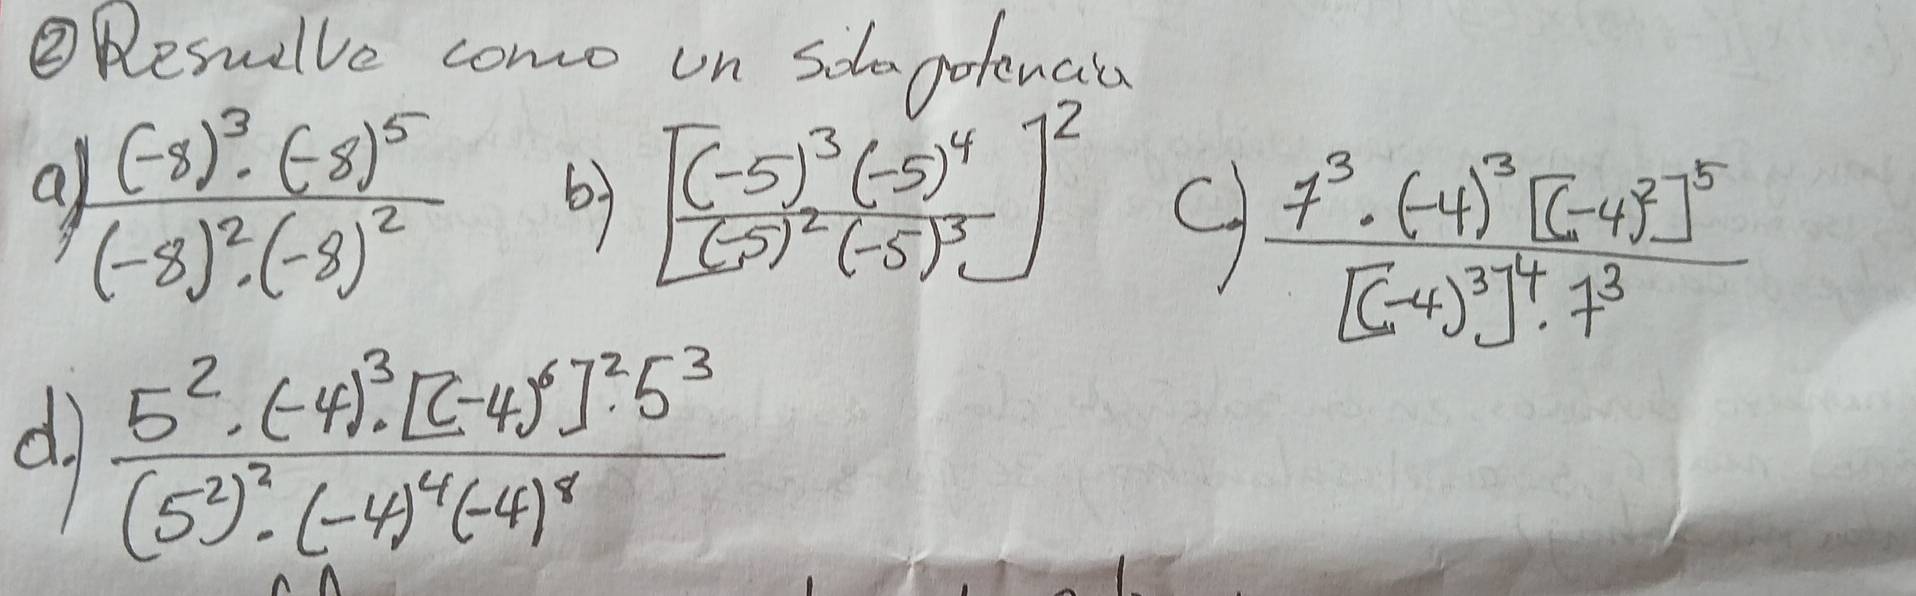 ② Resuelve como un sola potencia
a) \frac{(-8)^3 \cdot (-8)^5}{(-8)^2 \cdot (-8)^2} b) \left[\frac{(-5)^3 (-5)^4}{(-5)^2 (-5)^3}\right]^2 c) \frac{7^3 \cdot (-4)^3 [(-4)^2]^5}{[(-4)^3]^4 \cdot 7^3}
d.) \frac{5^2 \cdot (-4)^3 \cdot [(-4)^6]^2 \cdot 5^3}{(5^2)^2 \cdot (-4)^4 (-4)^8}